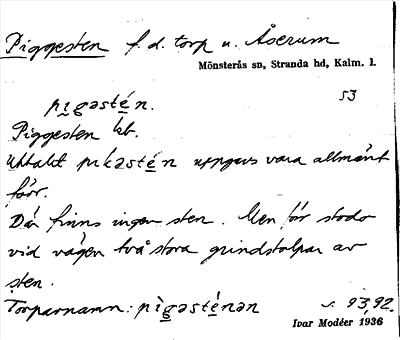 Piggesten f. d. torp u. Åserum
Mönsterås sn, Stranda hd, Kalm. l.
53
pìgəstén.
Piggesten kb.
Uttalet pıkəstén uppgavs vara allmänt
förr.
Där finns ingen sten. Men förr stodo
vid vägen två stora grindstolpar av
sten.
Torparnamn: pìgəsténən s. 93, 92.
Ivar Modéer 1936